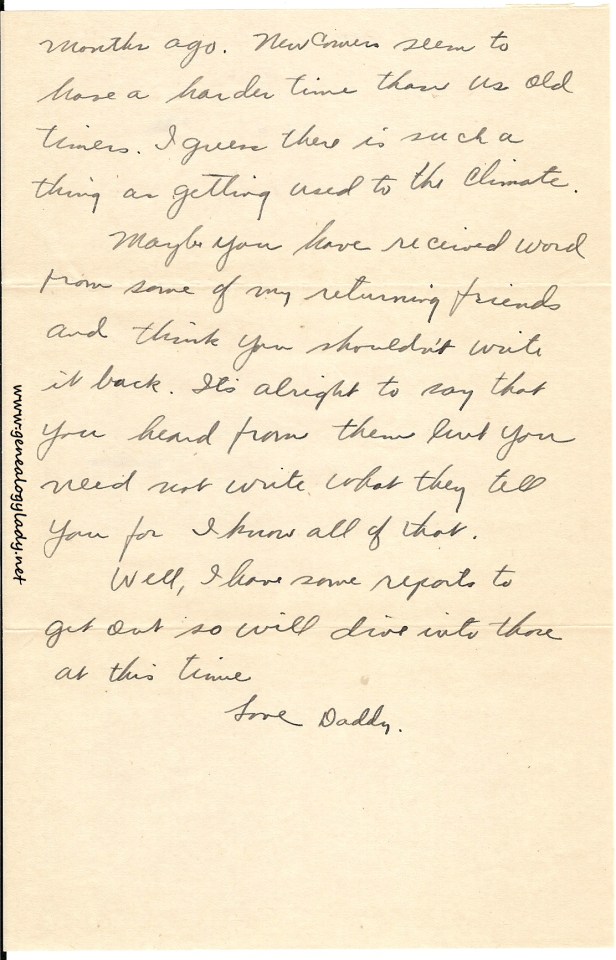 months ago. Newcomers seem to
have a harder time than us old
timers. I guess there is such a
thing as getting used to the climate.
Maybe you have received word
from some of my returning friends
and think you shouldn't write
it back. It's alright to say that
you heard from them but you
need not write what they tell
you for I know all of that.
Well, I have some reports to
get out so will dive into those
at this time
Love Daddy.
www.genealogylady.net